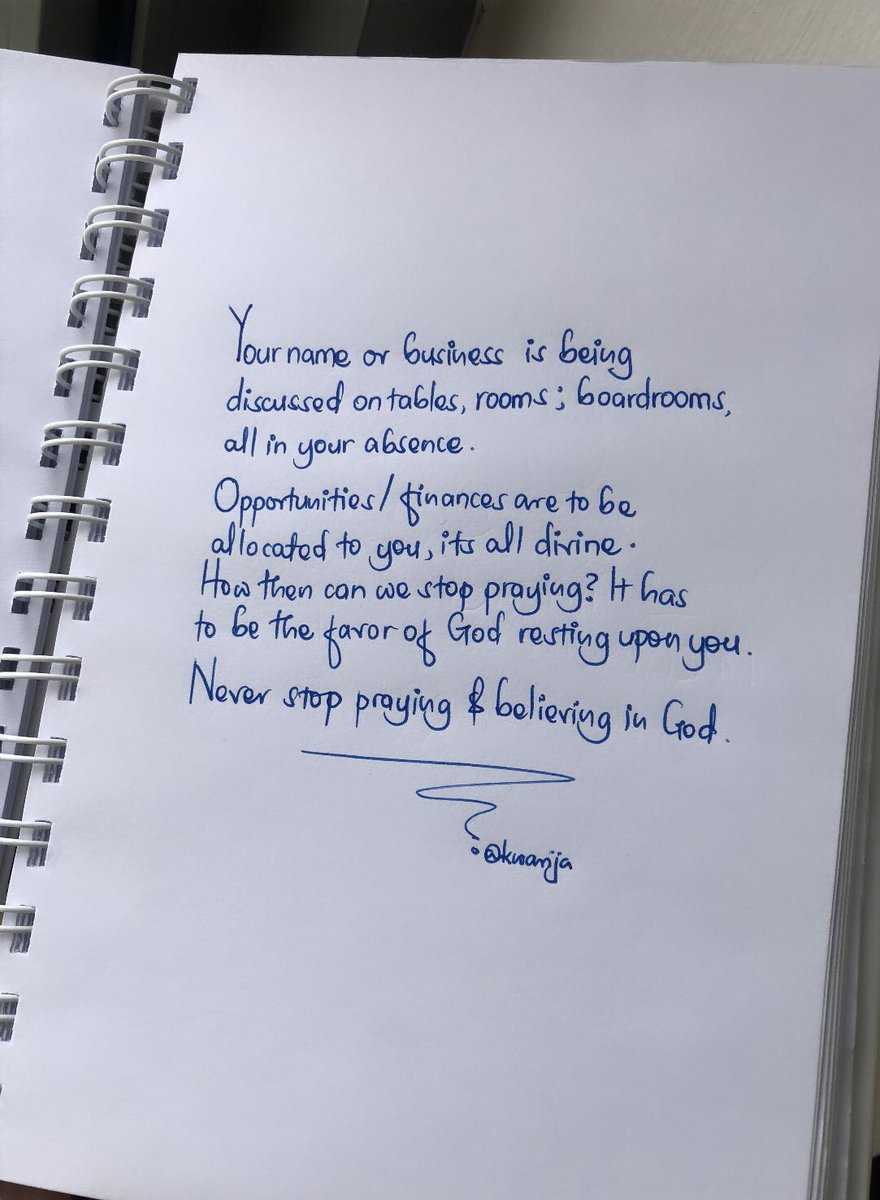 Your name or business is being
discussed on tables, rooms; boardrooms,
all in your absence.
Opportunities/finances are to be
allocated to you, its all divine.
How then can we stop praying? It has
to be the favor of God resting upon you.
Never stop praying & believing in God.
@kwamja